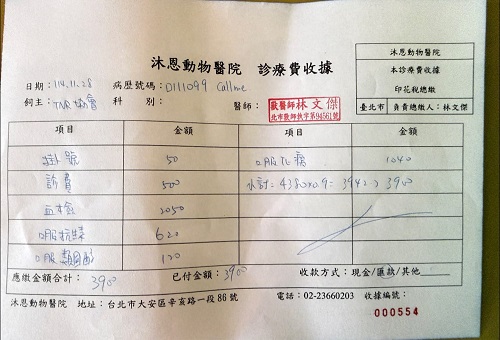 沐恩動物醫院 診療費收據
沐恩動物醫院
本診療費收據
印花稅總繳
臺北市 負責總繳人：林文傑
日期：114.11.28 病歷號碼：D111099 Callme
飼主：TNR協會 科 別： 醫師： 獸醫師林文傑
北市獸師執字第94561號
項目 金額 項目 金額
掛號 50 口服 1040
診費 500 小計=4380×0.9=3942→3900
血檢 2050
口服抗生素 620
口服類固醇 120
應繳金額合計：3900 已付金額：3900 收款方式：現金/匯款/其他
沐恩動物醫院 地址：台北市大安區辛亥路一段86號 電話：02-23660203 收據編號：
000554